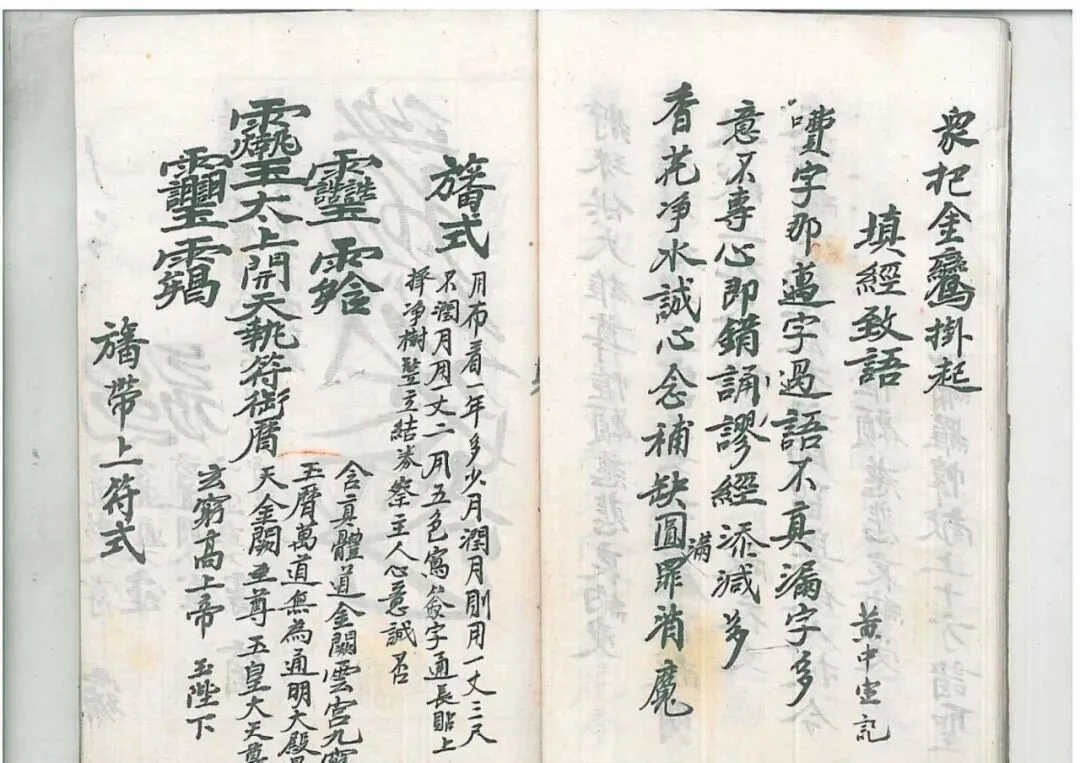 眾把金鸞掛起
填經致語
黄中宝記
嘳字那邁字過語不真漏字多
意不專心即錯誦謬經添減多
香花净水誠心念補缺圓滿罪消魔
旛式
用布看一年多少月潤月則用一丈三尺
不潤月用丈二用五色寫簽字通長貼上
擇净樹豎立結券察主人心意誠否
太上開天執符御曆
含真體道金闕雲宮九穹
玉曆萬道無為通明大殿昊
天金闕至尊玉皇大天尊
玄穹高上帝 玉陛下
旛帶上符式